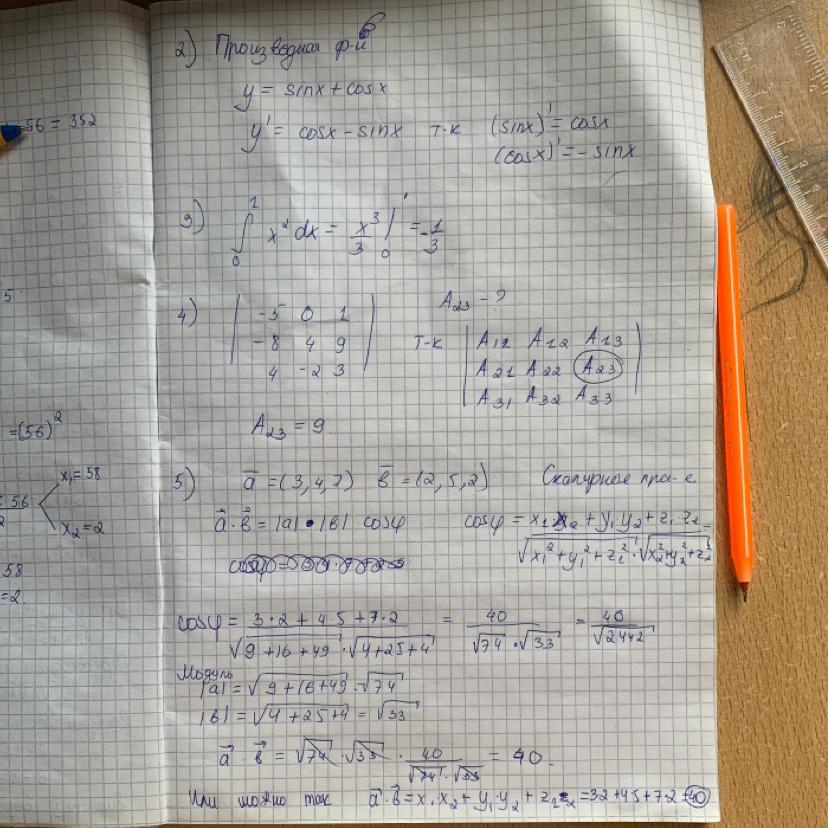 56 = 352
5
=(56)²
x₁=58
± 56
2
x₂=2
58
=2.
2) Производная ф-и
y = sinx + cosx
y' = cosx - sinx т-к (sinx)' = cosx
(cosx)' = - sinx
3) ∫₀¹ x² dx = x³/3 |₀¹ = -1/3
4) | -5 0 1 | A₂₃ - ?
| -8 4 9 | т-к | A₁₁ A₁₂ A₁₃ |
| 4 -2 3 | | A₂₁ A₂₂ A₂₃ |
| A₃₁ A₃₂ A₃₃ |
A₂₃ = 9
5) a = (3,4,7) b = (2,5,2) Скалярное пра-е.
a·b = |a| · |b| cosφ cosφ = x₁x₂ + y₁y₂ + z₁z₂ / √x₁²+y₁²+z₁² · √x₂²+y₂²+z₂²
cosφ = 3·2 + 4·5 + 7·2 / √9+16+49 · √4+25+4 = 40 / √74 · √33 = 40 / √2442
Модуль
|a| = √9+16+49 = √74
|b| = √4+25+4 = √33
a · b = √74 · √33 · 40 / √74 · √33 = 40.
Или можно так a·b = x₁x₂ + y₁y₂ + z₁z₂ = 3·2+4·5+7·2=40